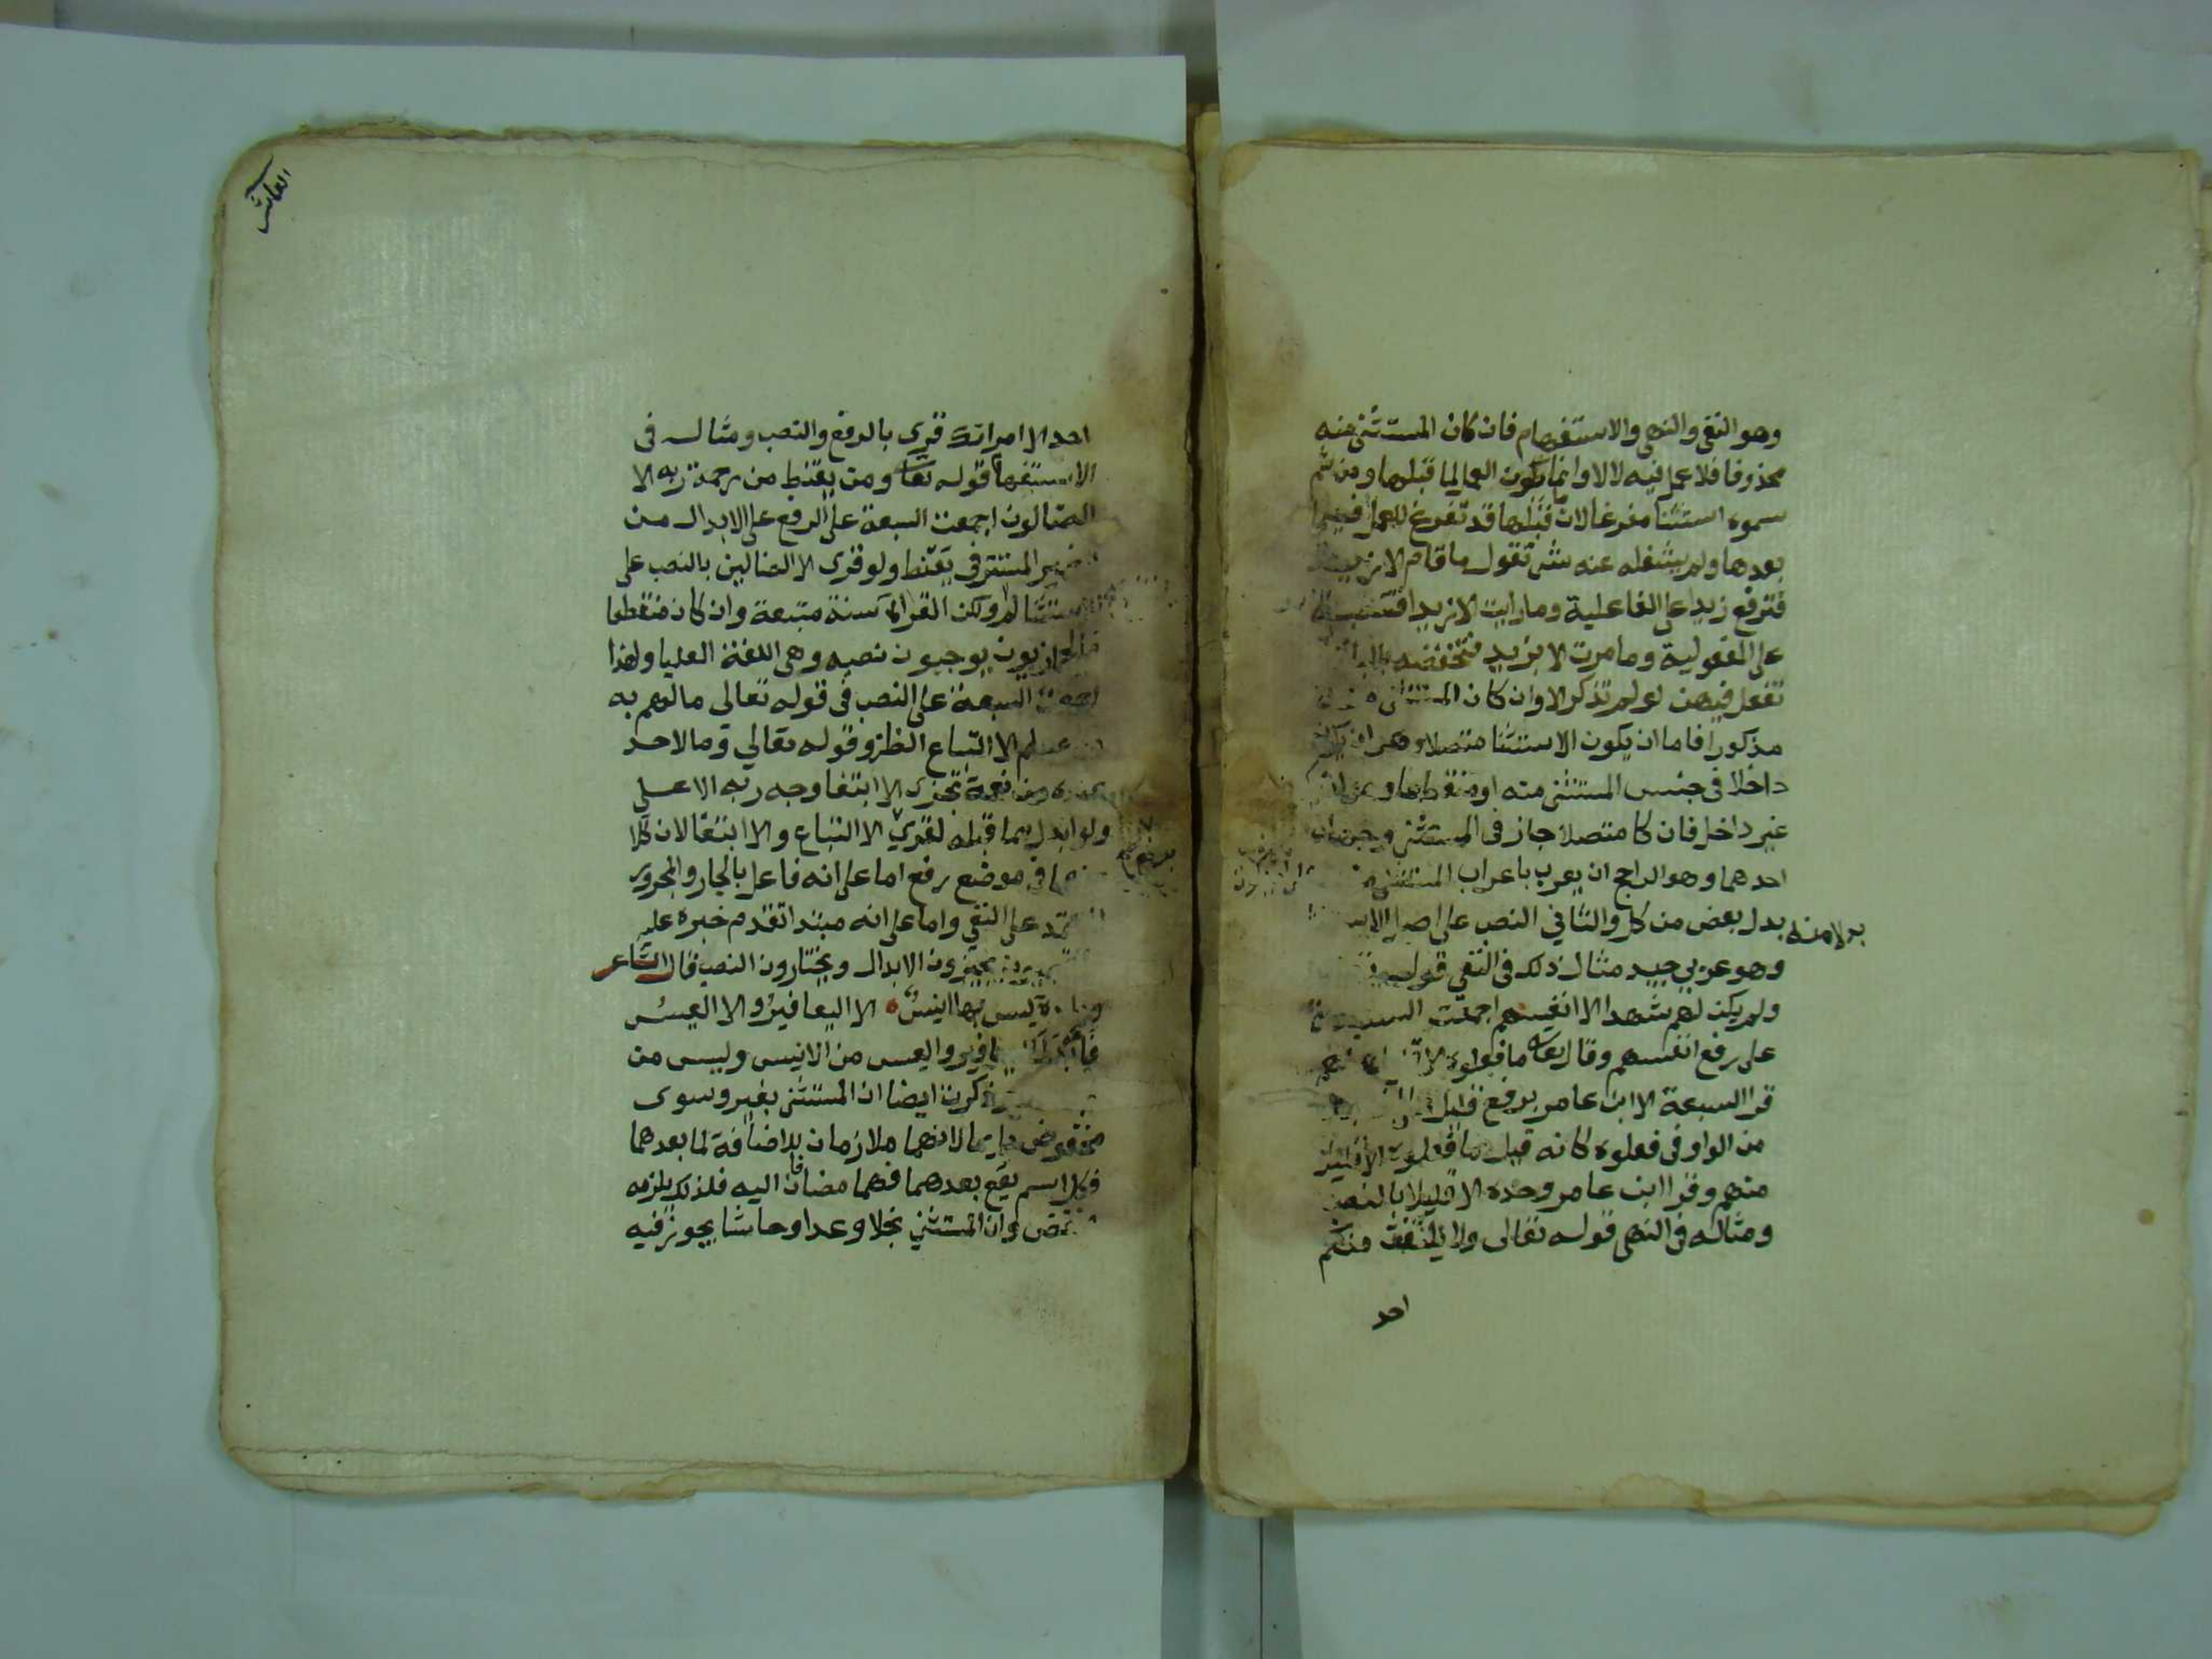 وهو النفى والنهى والاستفهام فان كان المستثنى منه
محذوفا فلا عمل فيه لالا وانما يكون العمل لما قبلها ومن ثم
سموه استثنا مفرغا لان ما قبلها قد تفرغ للعمل فيما
بعدها ولم يشغله عنه شى تقول ما قام الا زيد
فترفع زيدا على الفاعلية وما رايت الا زيدا فتنصبه
على المفعولية وما مررت الا بزيد فتخفضه بالبا
تفعل فيهن لو لم تذكر الا وان كان المستثنى
مذكورا فاما ان يكون الاستثنا متصلا وهو ان يكون
داخلا فى جنس المستثنى منه او منقطعا وهو ان
غير داخل فان كا متصلا جاز فى المستثنى وجهان
احدهما وهو الراجح ان يعرب باعراب المستثنى
بدلا منه
بدل بعض من كل والثاني النصب على اصل
وهو عربي جيد مثال ذلك فى النفى قوله
ولم يكن لهم شهدا الا انفسهم اجمعت السبعة
على رفع انفسهم وقال تعالى ما فعلوه الا
قرا السبعة الا ابن عامر برفع قليل
من الواو فى فعلوه كانه قيل ما فعلوه الا قليل
منهم وقرا ابن عامر وحده الا قليلا بالنصب
ومثاله فى النهى قوله تعالى ولا يلتفت منكم
احد
العاشر
احد الا امراتك قرى بالرفع والنصب ومثاله فى
الاستفهام قوله تعالى ومن يقنط من رحمة ربه الا
الضالون اجمعت السبعة على الرفع على الابدال من
المستتر فى يقنط ولو قرى الا الضالين بالنصب على
ولكن القراة سنة متبعة وان كان منقطعا
يوجبون نصبه وهى اللغة العليا ولهذا
السبعة على النصب فى قوله تعالى ما لهم به
من علم الا اتباع الظن وقوله تعالى وما لاحد
عنده من نعمة تجزى الا ابتغا وجه ربه الاعلى
ولو ابدل مما قبله لقرى الا اتباع والا ابتغا لان كلا
فى موضع رفع اما على انه فاعل بالجار والمجرور
على النفى واما على انه مبتدا تقدم خبره عليه
يجيزون الابدال ويختارون النصب قال الشاعر
ليس بها انيس الا اليعافير والا العيس
والعيس من الانيس وليس من
ذكرت ايضا ان المستثنى بغير وسوى
مخفوض لانهما ملازمان للاضافة لما بعدهما
فكل اسم يقع بعدهما فهما مضافان اليه فلذلك يلزمه
وان المستثنى بخلا وعدا وحاشا يجوز فيه